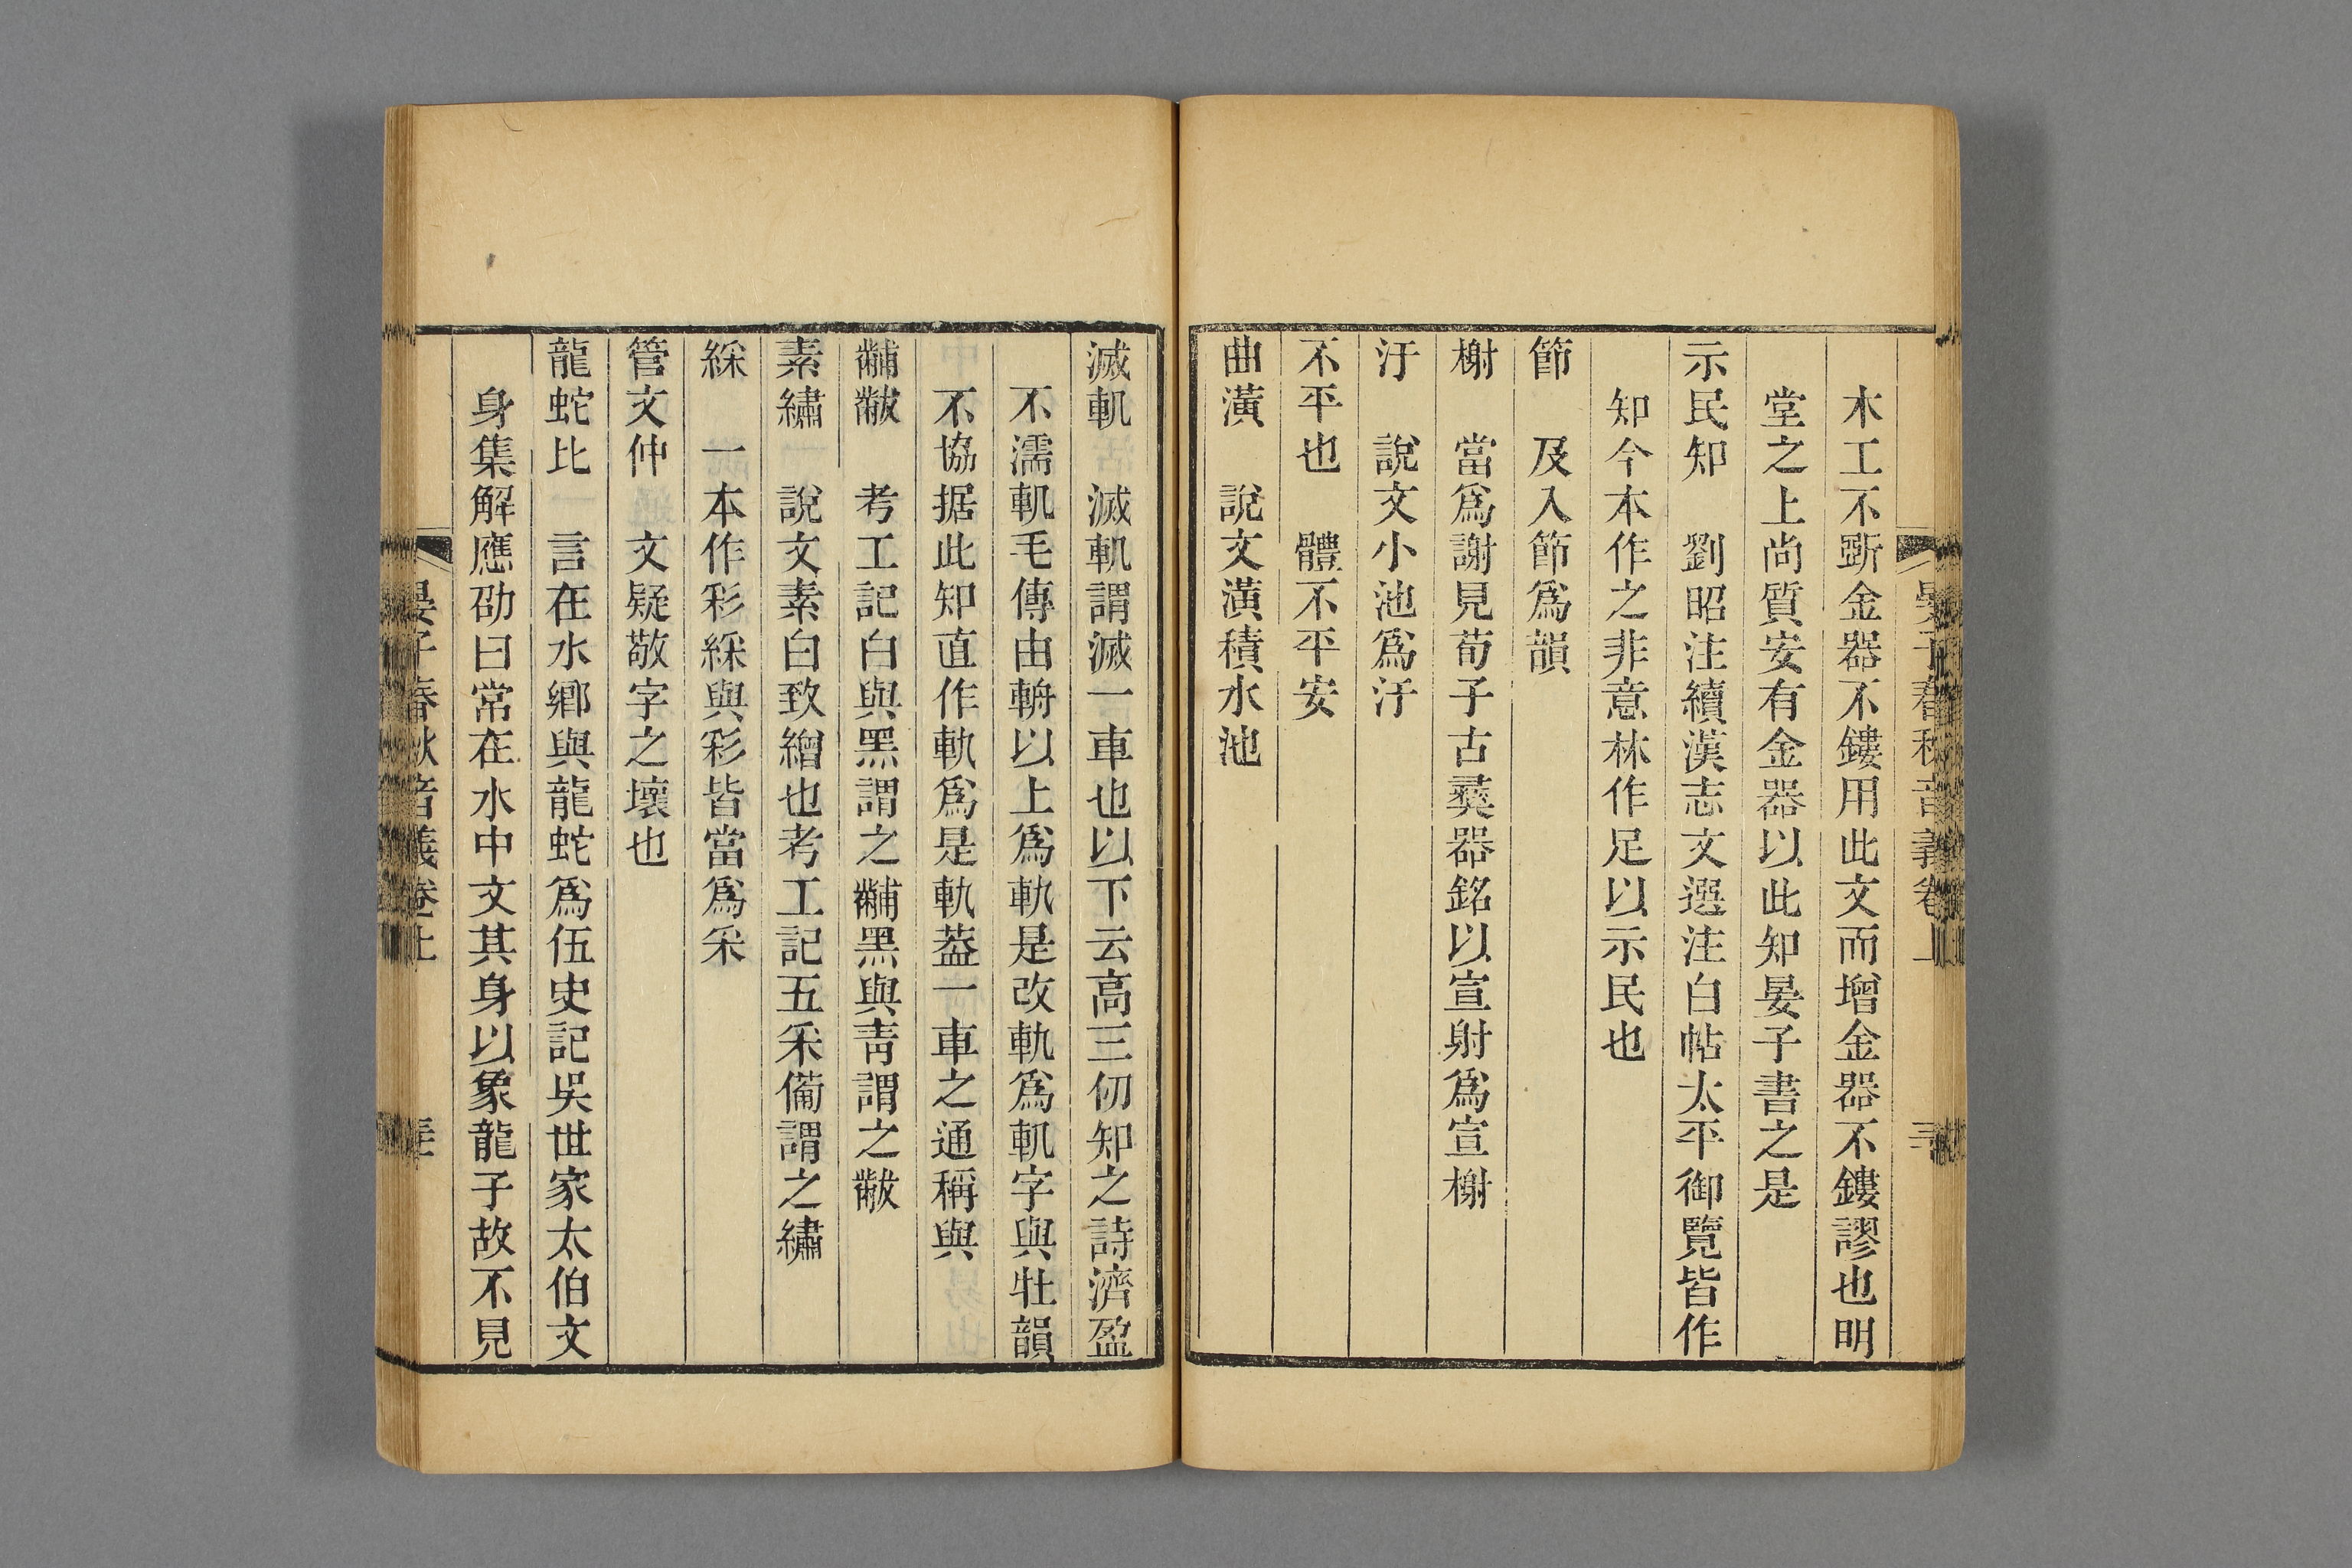 木工不斲金器不鏤用此文而增金器不鏤謬也明
堂之上尚質安有金器以此知晏子書之是
示民知　劉昭注續漢志文選注白帖太平御覽皆作
知今本作之非意林作足以示民也
節　及入節爲韻
榭　當爲謝見荀子古彝器銘以宣射爲宣榭
汙　說文小池爲汙
不平也　體不平安
曲潢　說文潢積水池
滅軓　滅軓謂滅一車也以下云高三仞知之詩濟盈
不濡軓毛傳由輈以上爲軌是改軌爲軓字與牡韻
不協据此知直作軌爲是軌葢一車之通稱與
黼黻　考工記白與黑謂之黼黑與靑謂之黻
素繡　說文素白致繒也考工記五采備謂之繡
綵　一本作彩綵與彩皆當爲采
管文仲　文疑敬字之壞也
龍蛇比　言在水鄉與龍蛇爲伍史記吳世家太伯文
身集解應劭曰常在水中文其身以象龍子故不見
晏子春秋音義卷上